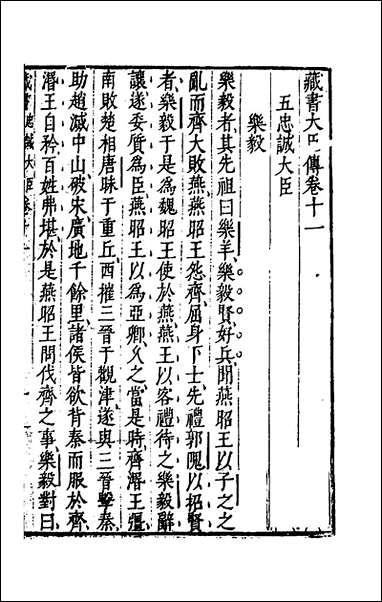 藏書大臣傳卷十一
五忠誠大臣
樂毅
樂毅者其先祖曰樂羊樂毅賢好兵聞燕昭王以子之之
亂而齊大敗燕燕昭王怨齊屈身下士先禮郭隗以招賢
者樂毅于是爲魏昭王使於燕燕王以客禮待之樂毅辭
讓遂委質爲臣燕昭王以爲亞卿久之當是時齊湣王彊
南敗楚相唐昧于重丘西摧三晉于觀津遂與三晉擊秦
助趙滅中山破宋廣地千餘里諸侯皆欲背秦而服於齊
湣王自矜百姓弗堪於是燕昭王問伐齊之事樂毅對曰
藏書忠誠大臣卷十一